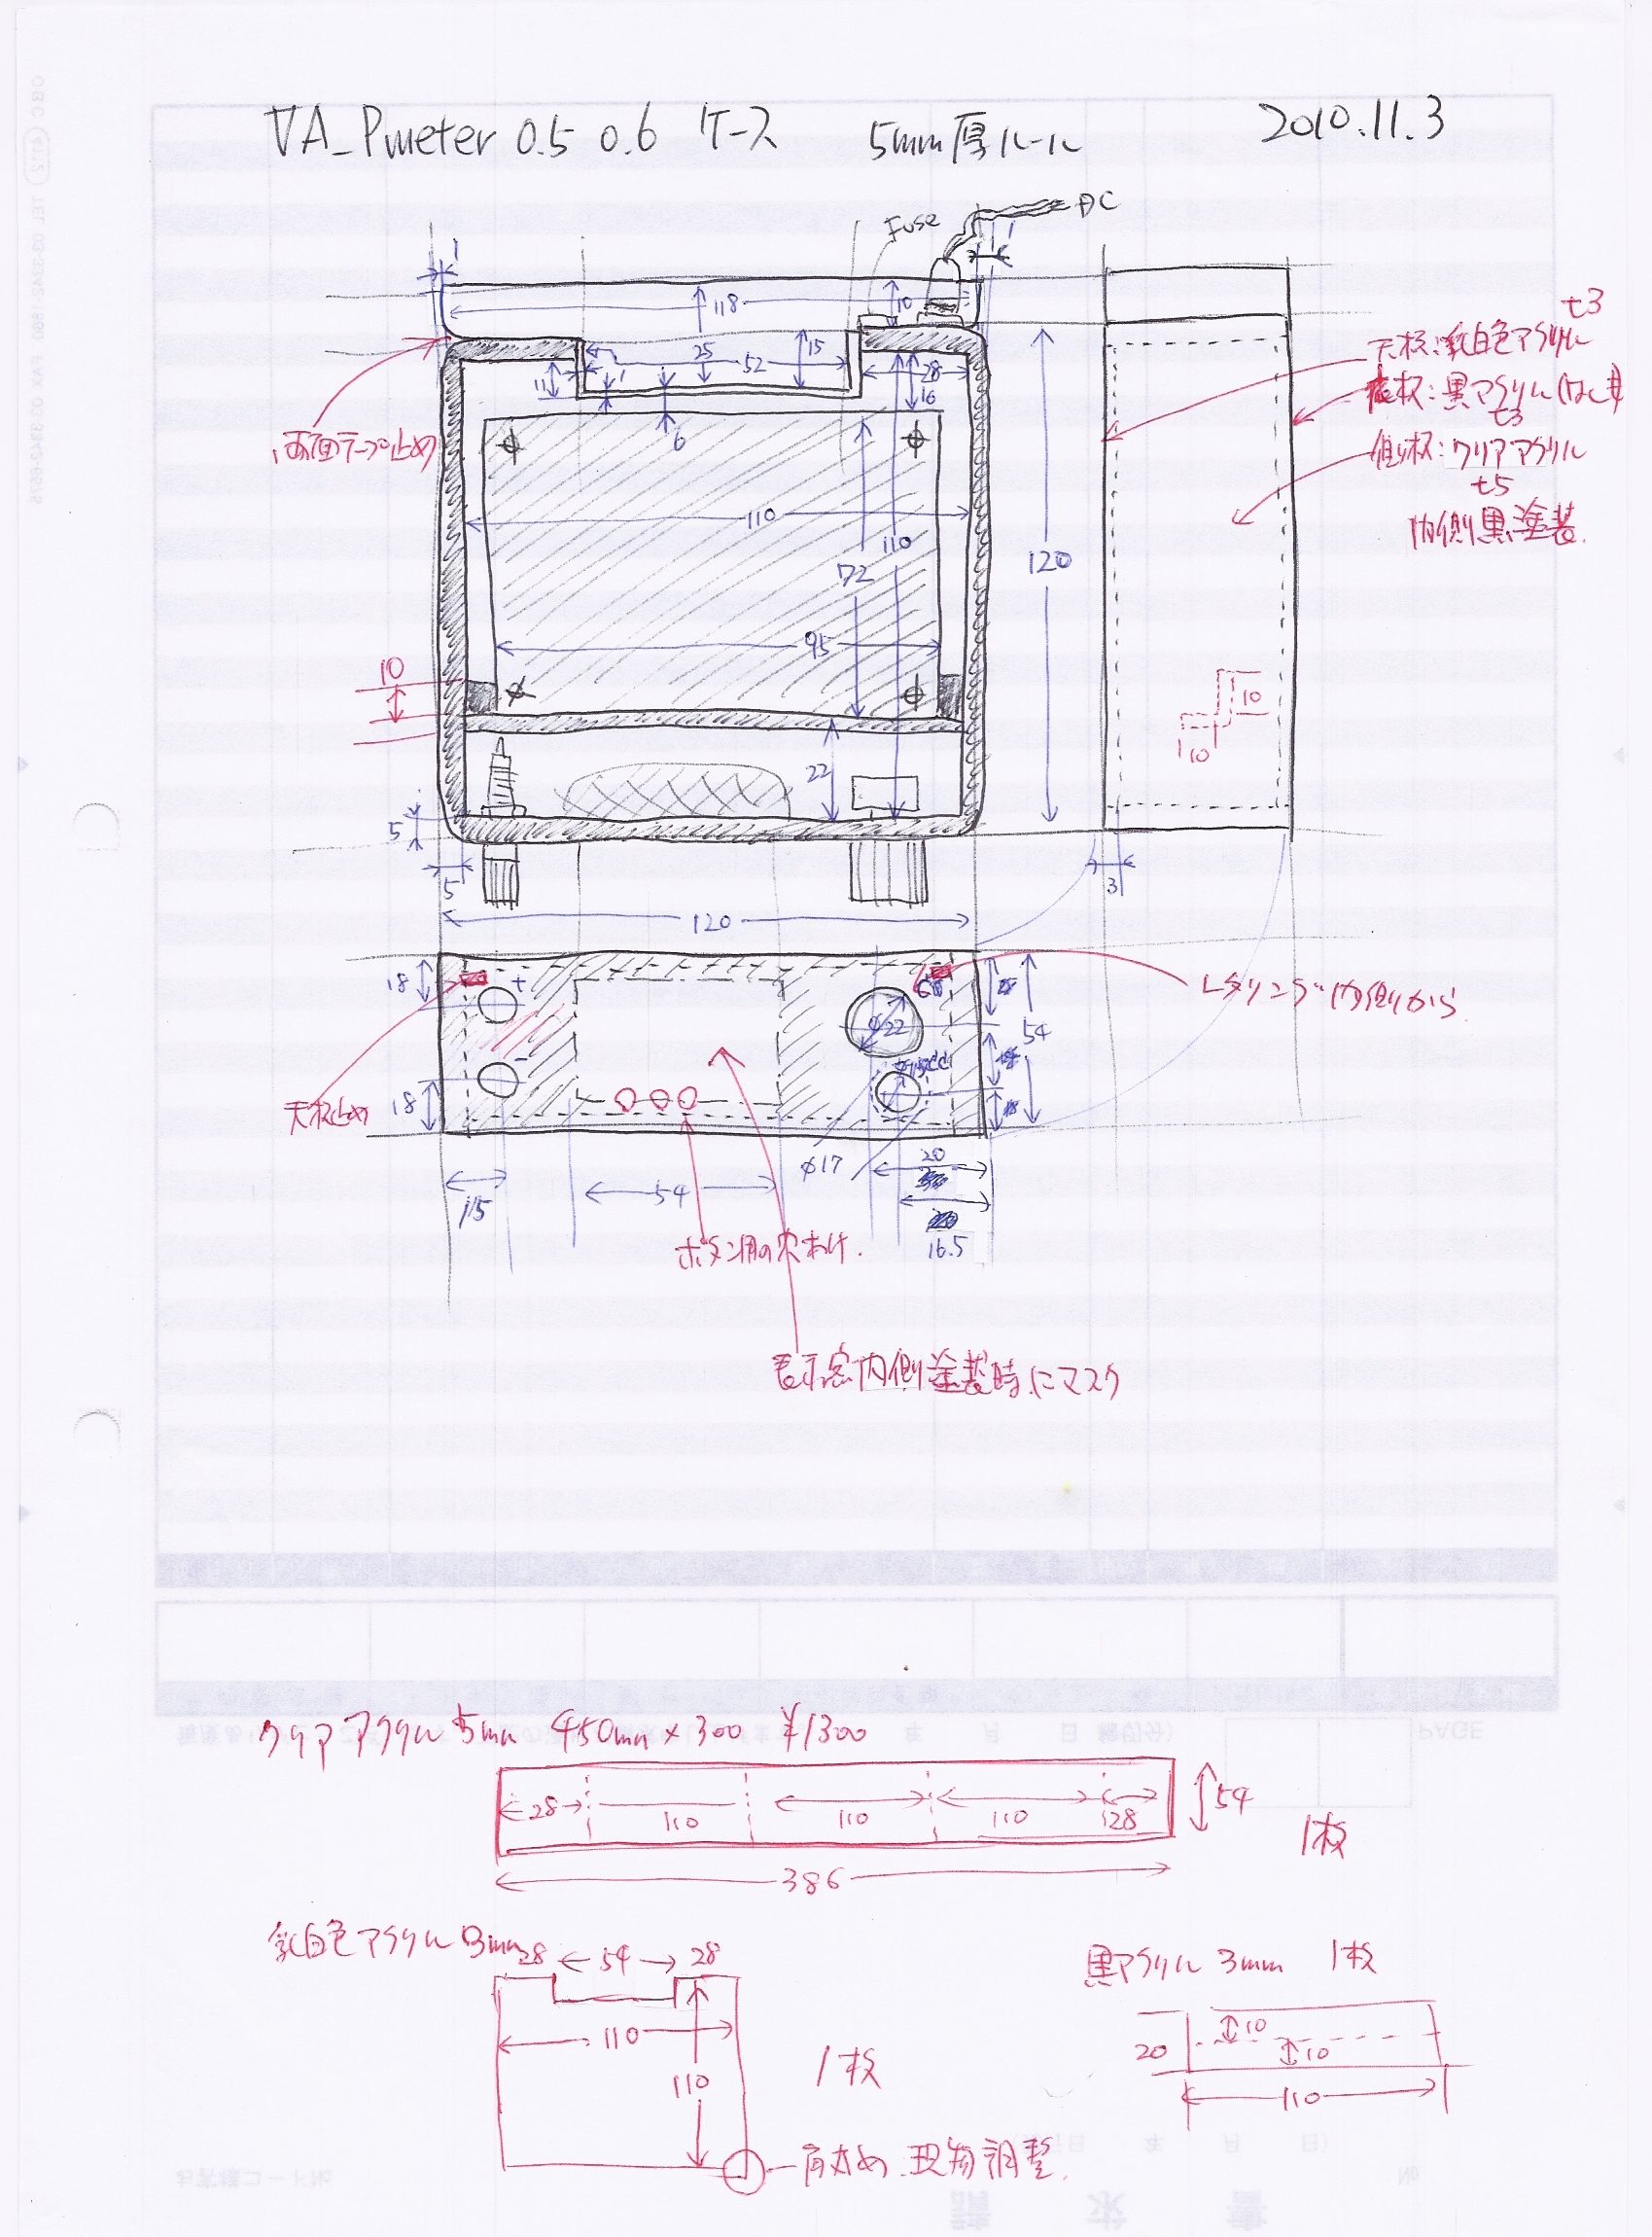 VA_Pmeter 0.5 0.6 ケース 5mm厚ルール 2010.11.3
Fuse
AC
1
1
118
10
t3
天板:乳白色アクリル
底板:黒アクリル
t3
側板:クリアアクリル
t5
内側黒塗装
両面テープ止め
25
52
15
11
1
28
16
6
110
110
72
95
120
10
10
10
22
5
5
3
120
18
+
φ22
54
レタリング内側から
-
18
天板止め
φ17
20
15
54
16.5
ボタン用の穴あけ.
表示窓内側塗装時にマスク
クリアアクリル 5mm 450mm×300 ¥1300
28
110
110
110
28
54
1枚
386
乳白色アクリル 3mm
28
54
28
110
110
1枚
角丸め 現物調整
黒アクリル 3mm 1枚
20
10
10
110